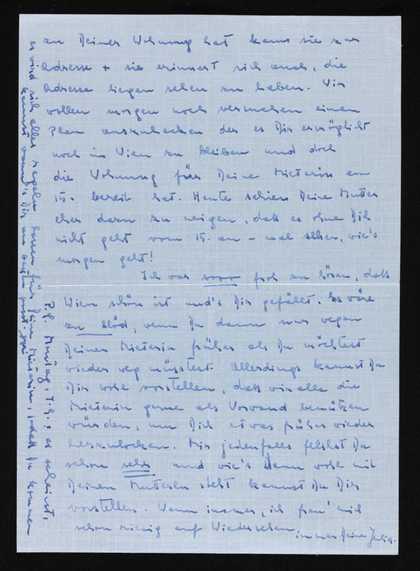 an Deiner Wohnung hat kann sie zur
Adresse + sie erinnert sich auch, die
Adresse liegen sehen zu haben. Wir
wollen morgen noch versuchen einen
Plan auszuhecken der es Dir ermöglicht
noch in Wien zu bleiben und doch
die Wohnung für Deine Mieterin am
15. bereit hat. Heute schien Deine Mutter
eher dazu zu neigen, daß es ohne Dich
nicht geht vom 15. an – mal sehen, wie's
morgen geht!
Ich war froh zu hören, daß
Wien schön ist und's Dir gefällt. Es wäre
zu blöd, wenn Du dann nur wegen
Deiner Mieterin früher als Du möchtest
wieder weg müsstest. Allerdings kannst Du
Dir wohl vorstellen, dass wir alle die
Mieterin gerne als Vorwand benützen
würden, um Dich etwas früher wieder
herzulocken. Mir jedenfalls fehlst Du
schon sehr und wie's dann wohl mit
Deinen steht kannst Du Dir
vorstellen. Wann immer, ich freu' mich
schon riesig auf Wiedersehen
immer Deine
P.S. Montag, es scheint,
es wird sich alles regeln für Deine Mieterin, sodaß Du
kannst wann Dir